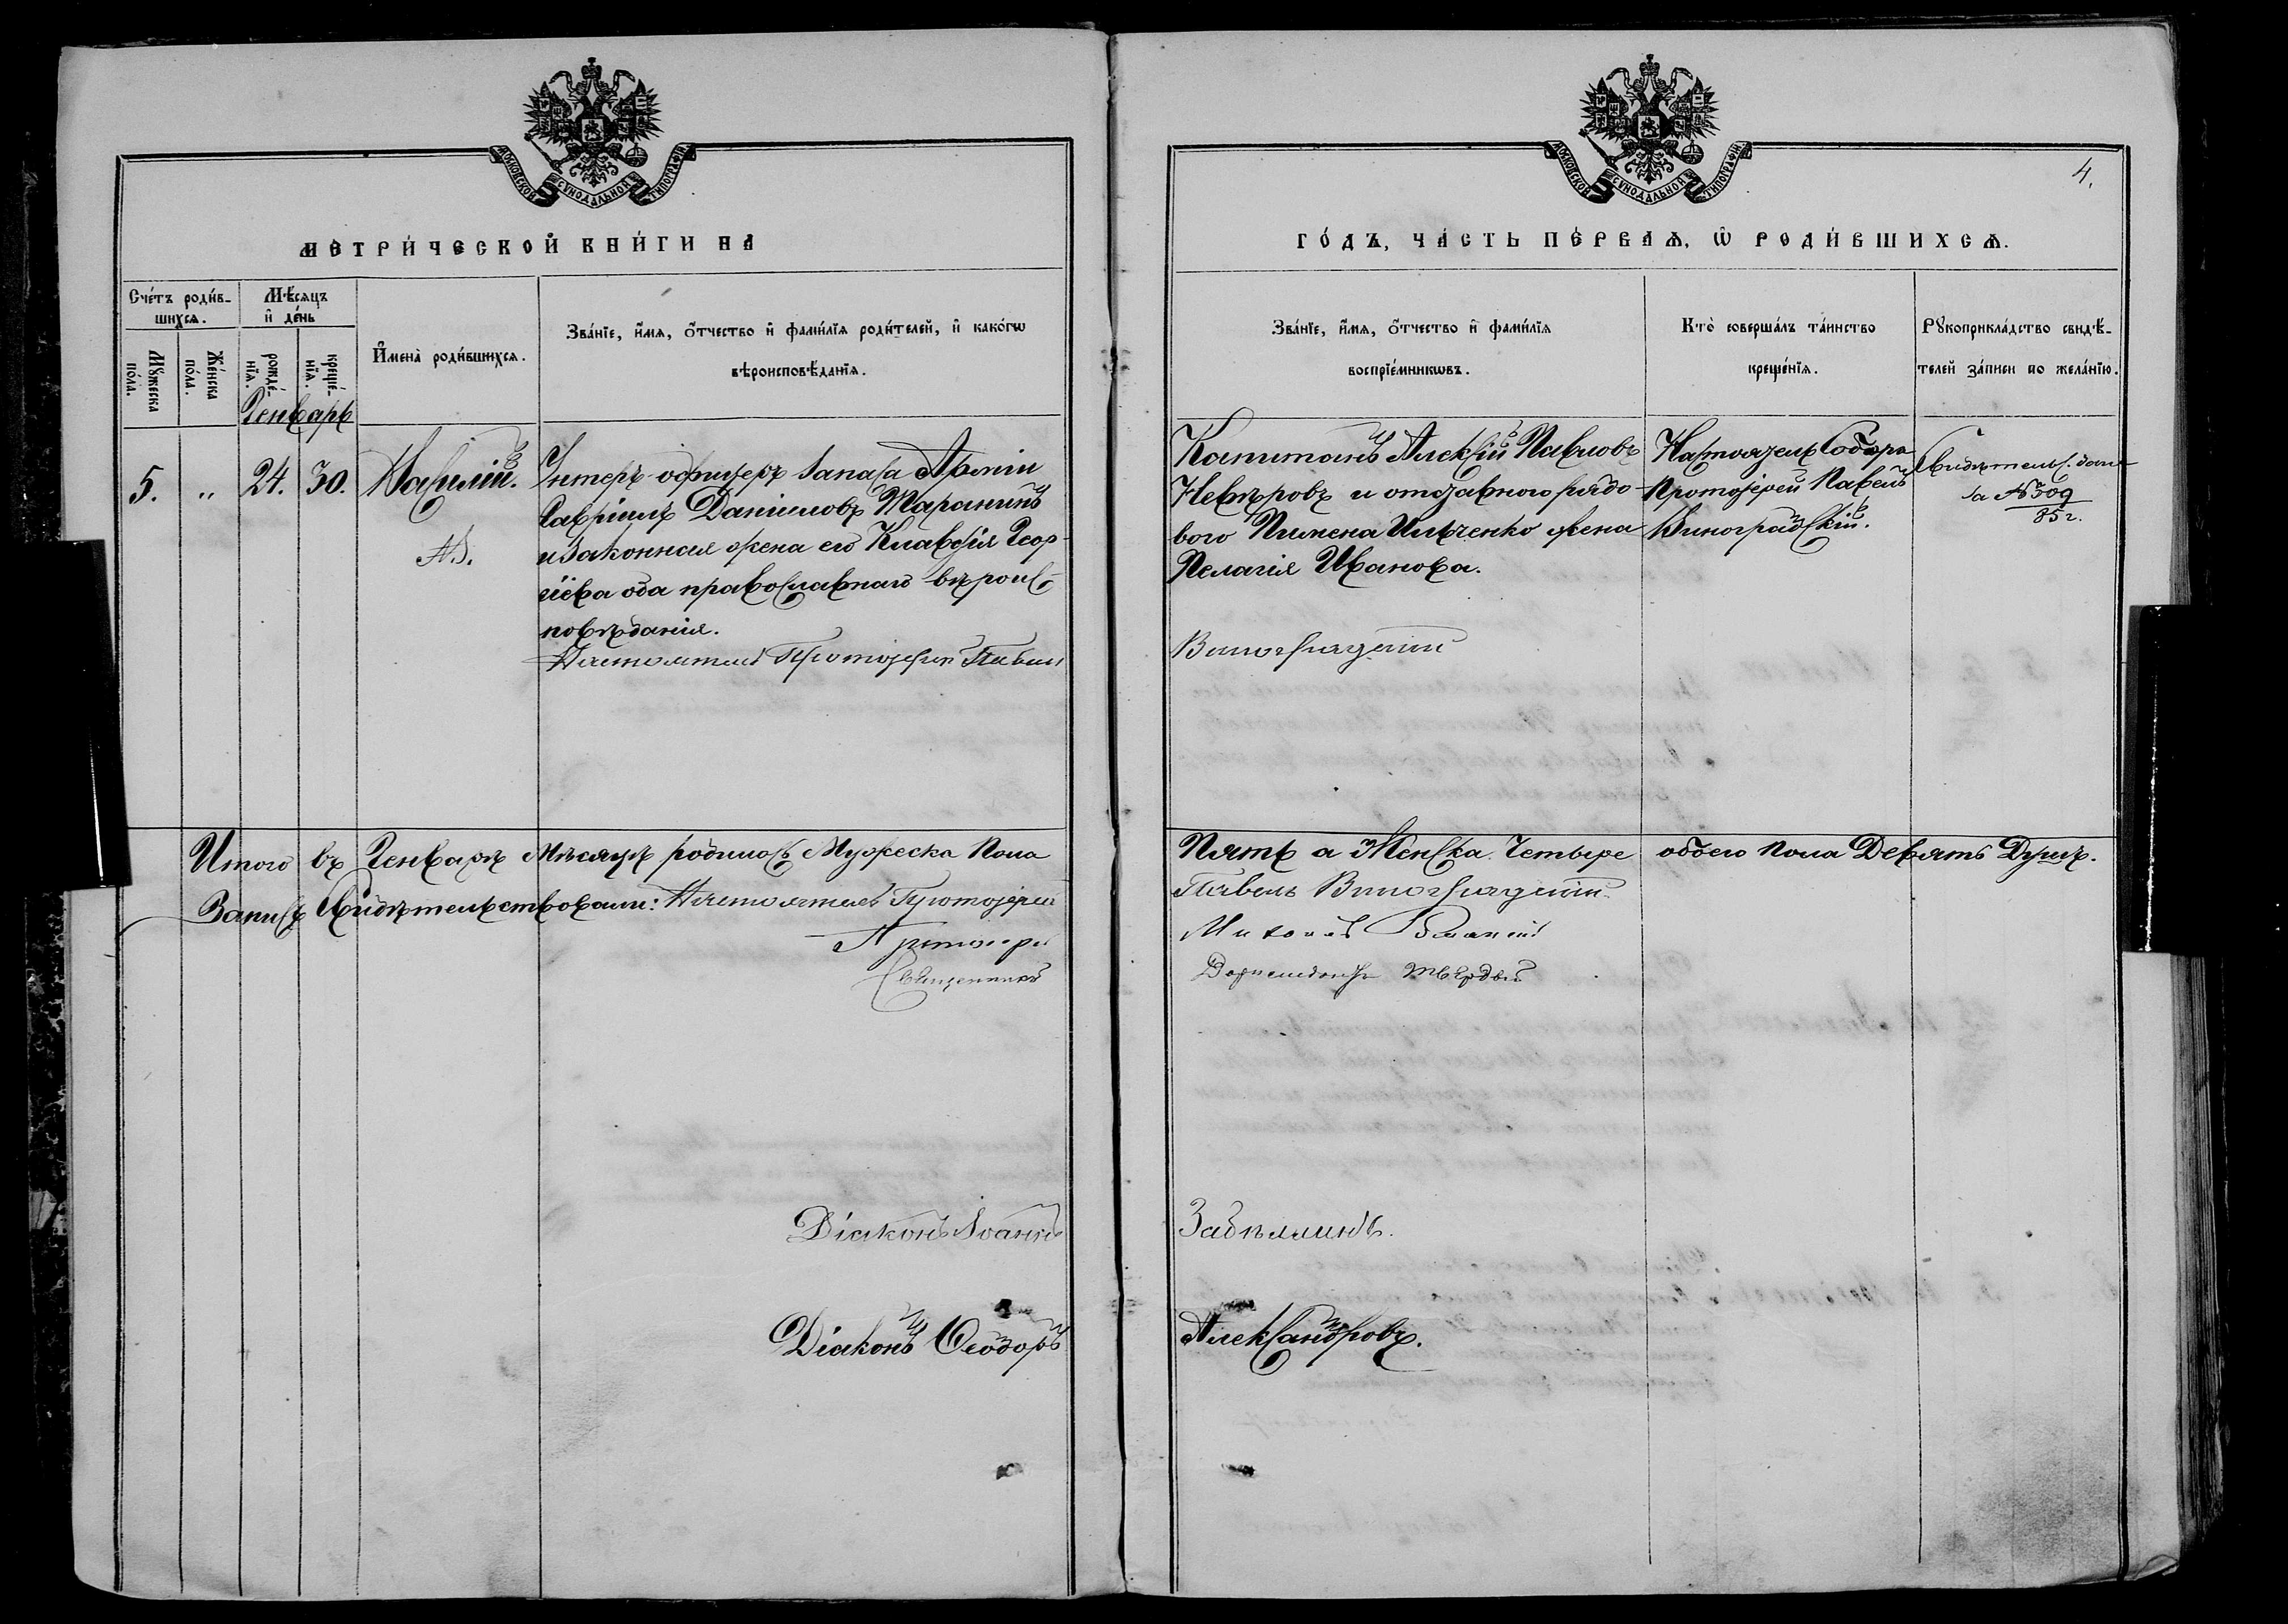 МОСКОВСКОЙ СУНОДАЛЬНОЙ ТИПОГРАФІИ
МЕТРИ́ЧЕСКОЙ КНИ́ГИ НА
Сче́тъ роди́в-
шихсѧ.
Мꙋ́жеска по́ла.
Же́нска по́ла.
Мѣ́сѧцъ
и҆ де́нь
рожде́-
нїѧ.
креще́-
нїѧ.
И҆мена̀ роди́вшихсѧ.
Зва́нїе, и҆́мѧ, ѻ҆́тчество и҆ фами́лїѧ роди́телей, и҆ како́гѡ
вѣроисповѣ́данїѧ.
Генварь
5. „ 24. 30. Василій.
Унтеръ-офицеръ запаса Арміи
Гавріилъ Даніиловъ Таранинъ
и законная жена его Клавдія Геор-
гіева оба православнаго вѣроис-
повѣданія.
Настоятель Протоіерей Павелъ
Итого въ Генварѣ Мѣсяцѣ родилось Мужеска Пола
Запись свидѣтельствовали: Настоятель Протоіерей
Протоіерей
Священникъ
Діаконъ Іоаннъ
Діаконъ Ѳеодоръ
МОСКОВСКОЙ СУНОДАЛЬНОЙ ТИПОГРАФІИ
4.
ГО́ДЪ, ЧА́СТЬ ПЕ́РВАѦ, Ѡ҆ РОДИ́ВШИХСѦ.
Зва́нїе, и҆́мѧ, ѻ҆́тчество и҆ фами́лїѧ
воспрїе́мникѡвъ.
Кто̀ соверша́лъ та́инство
креще́нїѧ.
Рꙋкоприкла́дство свидѣ́-
телей за́писи по жела́нїю.
Капитанъ Алексій Павловъ
Невѣровъ и отставного рядо-
вого Пимена Ильченко жена
Пелагія Иванова.
Виноградскій
Настоятель Собора
Протоіерей Павелъ
Виноградскій.
Свидѣтельс. дано
за №309
85 г.
Пять а Женска Четыре обоего пола Девять Душъ.
Павелъ Виноградскій
Михаилъ
Твердый
Забѣлинъ.
Александровъ.